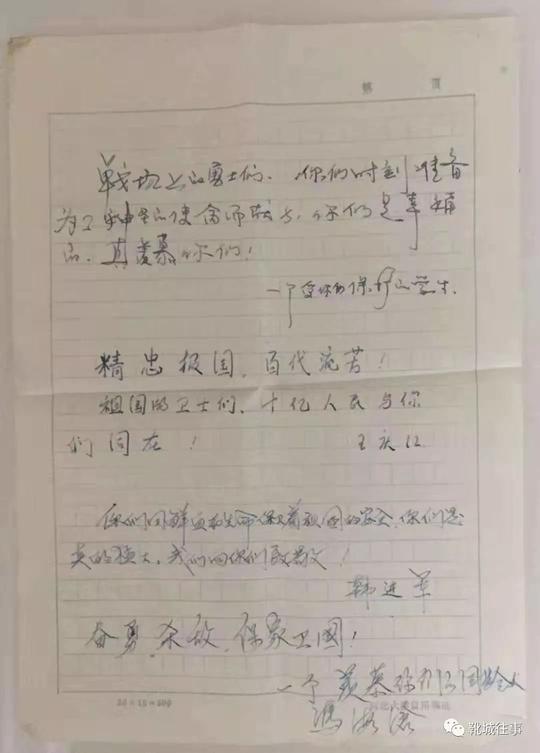 第 页
战场上的勇士们。你们时刻准备
为了神圣的使命而献身,你们是幸福
的,真羡慕你们!
一个受你们保护的学生.
精忠报国,百代流芳!
祖国的卫士们,十亿人民与你
们同在!
王庆江
你们用鲜血和生命保卫着祖国的安全,你们是
真的强士,我们向你们致敬!
韩进军
奋勇杀敌,保家卫国!
一个羡慕你们的同龄人
冯
20×15=300
河北大学自用稿纸
靴城往事